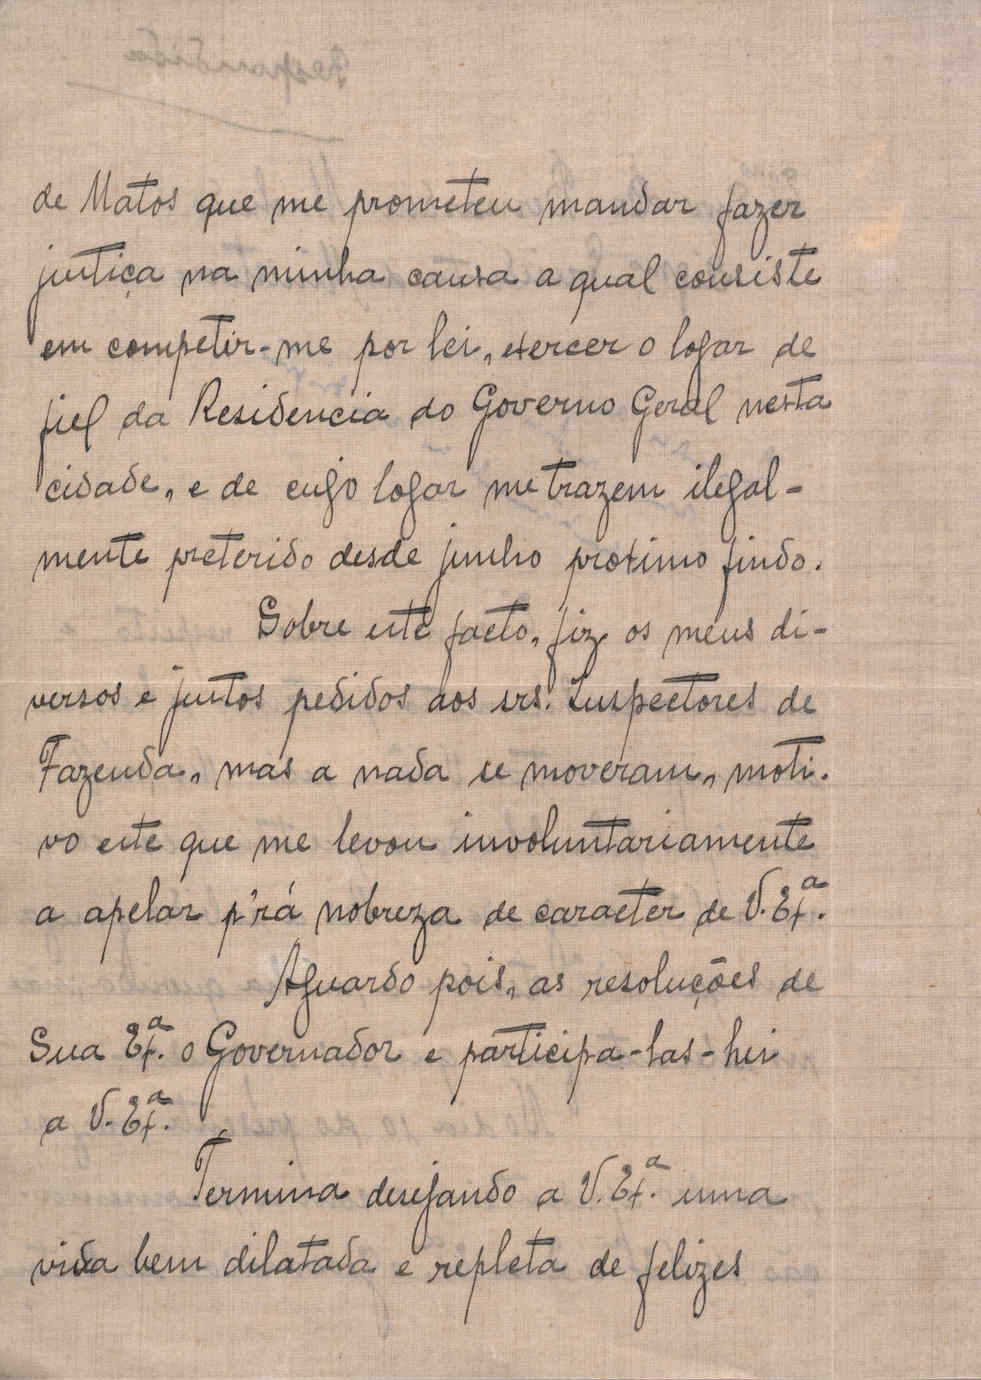 de Matos que me prometeu mandar fazer
justiça na minha causa a qual consiste
em competir-me por lei, exercer o logar de
fiel da Residencia do Governo Geral nesta
cidade, e de cujo logar me trazem ilegal-
mente preterido desde junho proximo findo.
Sobre este facto, fiz os meus di-
versos e justos pedidos aos srs. Inspectores de
Fazenda, mas a nada se moveram, moti-
vo este que me levou involuntariamente
a apelar p'rá nobreza de caracter de V. Exª.
Aguardo pois, as resoluções de
Sua Exª. o Governador e participa-las-hei
a V. Exª.
Termina desejando a V. Exª. uma
vida bem dilatada e repleta de felizes